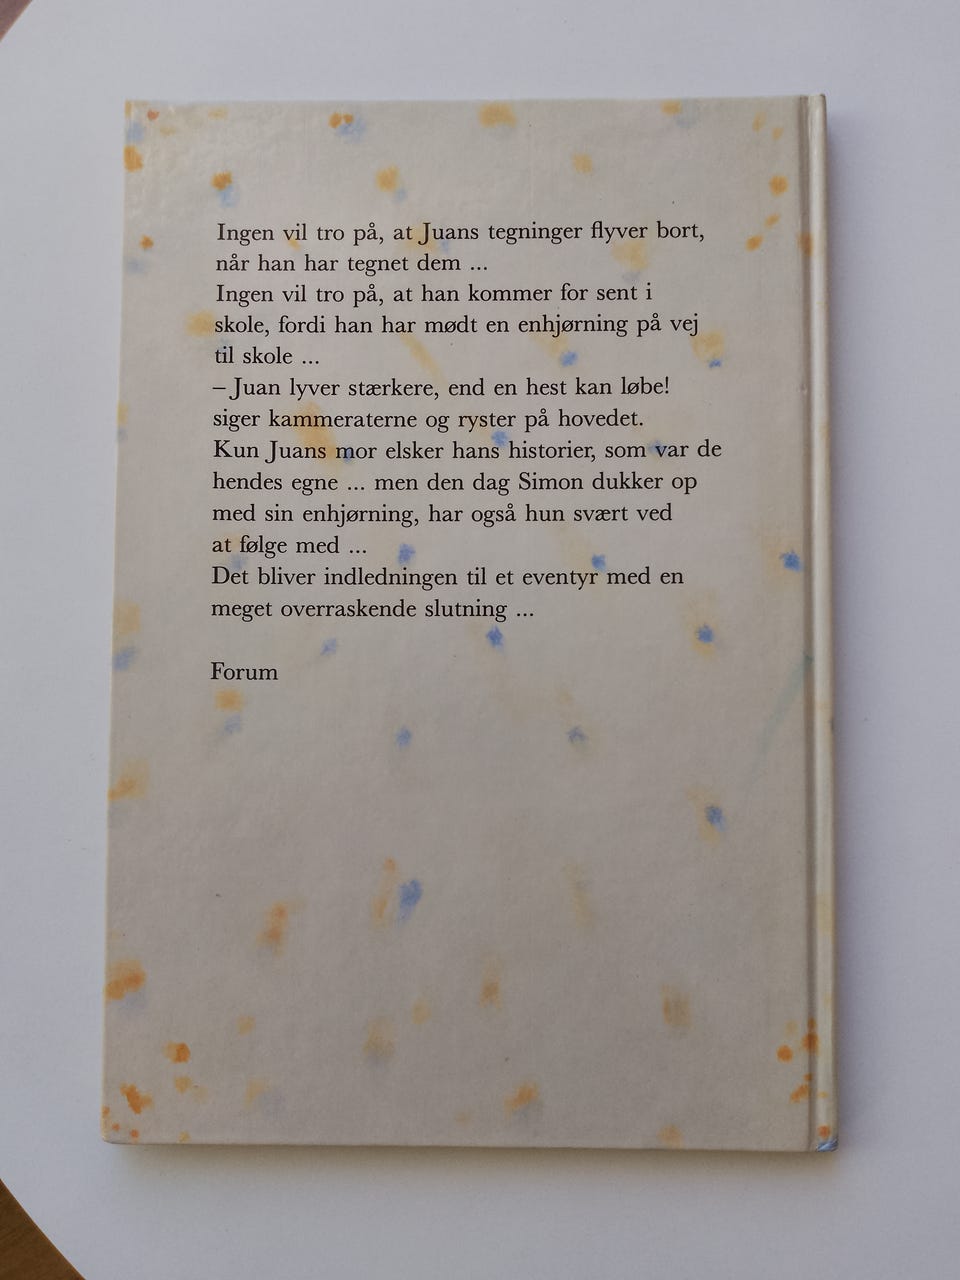 Ingen vil tro på, at Juans tegninger flyver bort,
når han har tegnet dem ...
Ingen vil tro på, at han kommer for sent i
skole, fordi han har mødt en enhjørning på vej
til skole ...
– Juan lyver stærkere, end en hest kan løbe!
siger kammeraterne og ryster på hovedet.
Kun Juans mor elsker hans historier, som var de
hendes egne ... men den dag Simon dukker op
med sin enhjørning, har også hun svært ved
at følge med ...
Det bliver indledningen til et eventyr med en
meget overraskende slutning ...
Forum